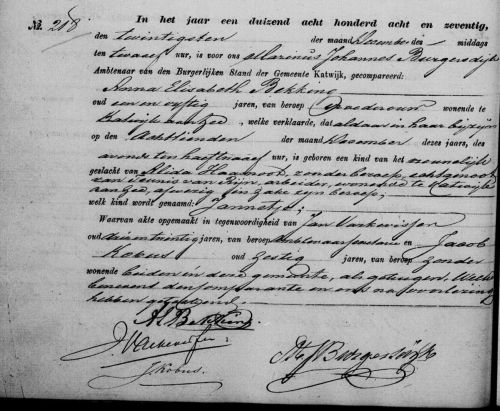 No. 218.
In het jaar een duizend acht honderd acht en zeventig,
den twintigsten der maand December des middags
ten twaalf uur, is voor ons Marinus Johannes Burgersdijk
Ambtenaar van den Burgerlijken Stand der Gemeente Katwijk, gecompareerd:
Anna Elisabeth Bekking
oud een en vijftig jaren, van beroep vroedvrouw wonende te
Katwijk aan Zee, welke verklaarde, dat aldaar in haar bijzijn
op den Achttienden der maand December dezes jaars, des
avonds ten half twaalf uur, is geboren een kind van het
geslacht van Alida Haasnoot, zonder beroep, echtgenoot
van Teunis van Rijn, arbeider, wonende te Katwijk
aan Zee, afwezig ter zake zijn beroep,
welk kind wordt genaamd: Jannetje,
Waarvan akte opgemaakt in tegenwoordigheid van Jan Varkevisser
oud jaren, van beroep en Jacob
Kobus oud zestig jaren, van beroep zonder
wonende beiden in deze gemeente, als getuigen. Welke
benevens den comparante en ons na voorlezing
hebben geteekend.
A E Bekking
J Varkevisser
J Kobus.
M J Burgersdijk